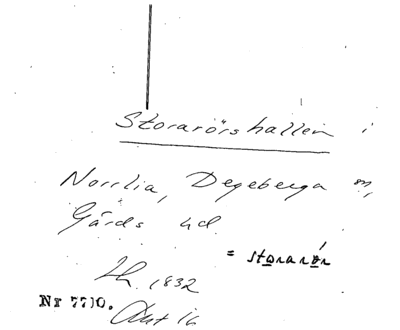 Storarörshallen i
Norrlia, Degeberga sn,
Gärds hd.
= storarör
Lh. 1832
Nr 7710. Akt 16